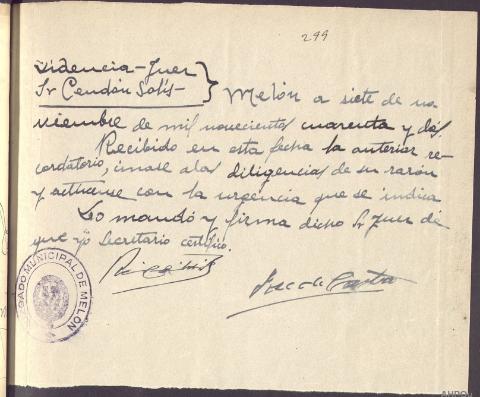 299
videncia - Juez
Sr Cendón Solís -
Melón a siete de no
viembre de mil novecientos cuarenta y dós
Recibido en esta fecha la anterior re-
cordatorio, únase a las diligencias de su razón
y actúese con la urgencia que se indica
Lo mandó y firma dicho Sr Juez de
que yo Secretario certifico.
GADO MUNICIPAL DE MELÓN